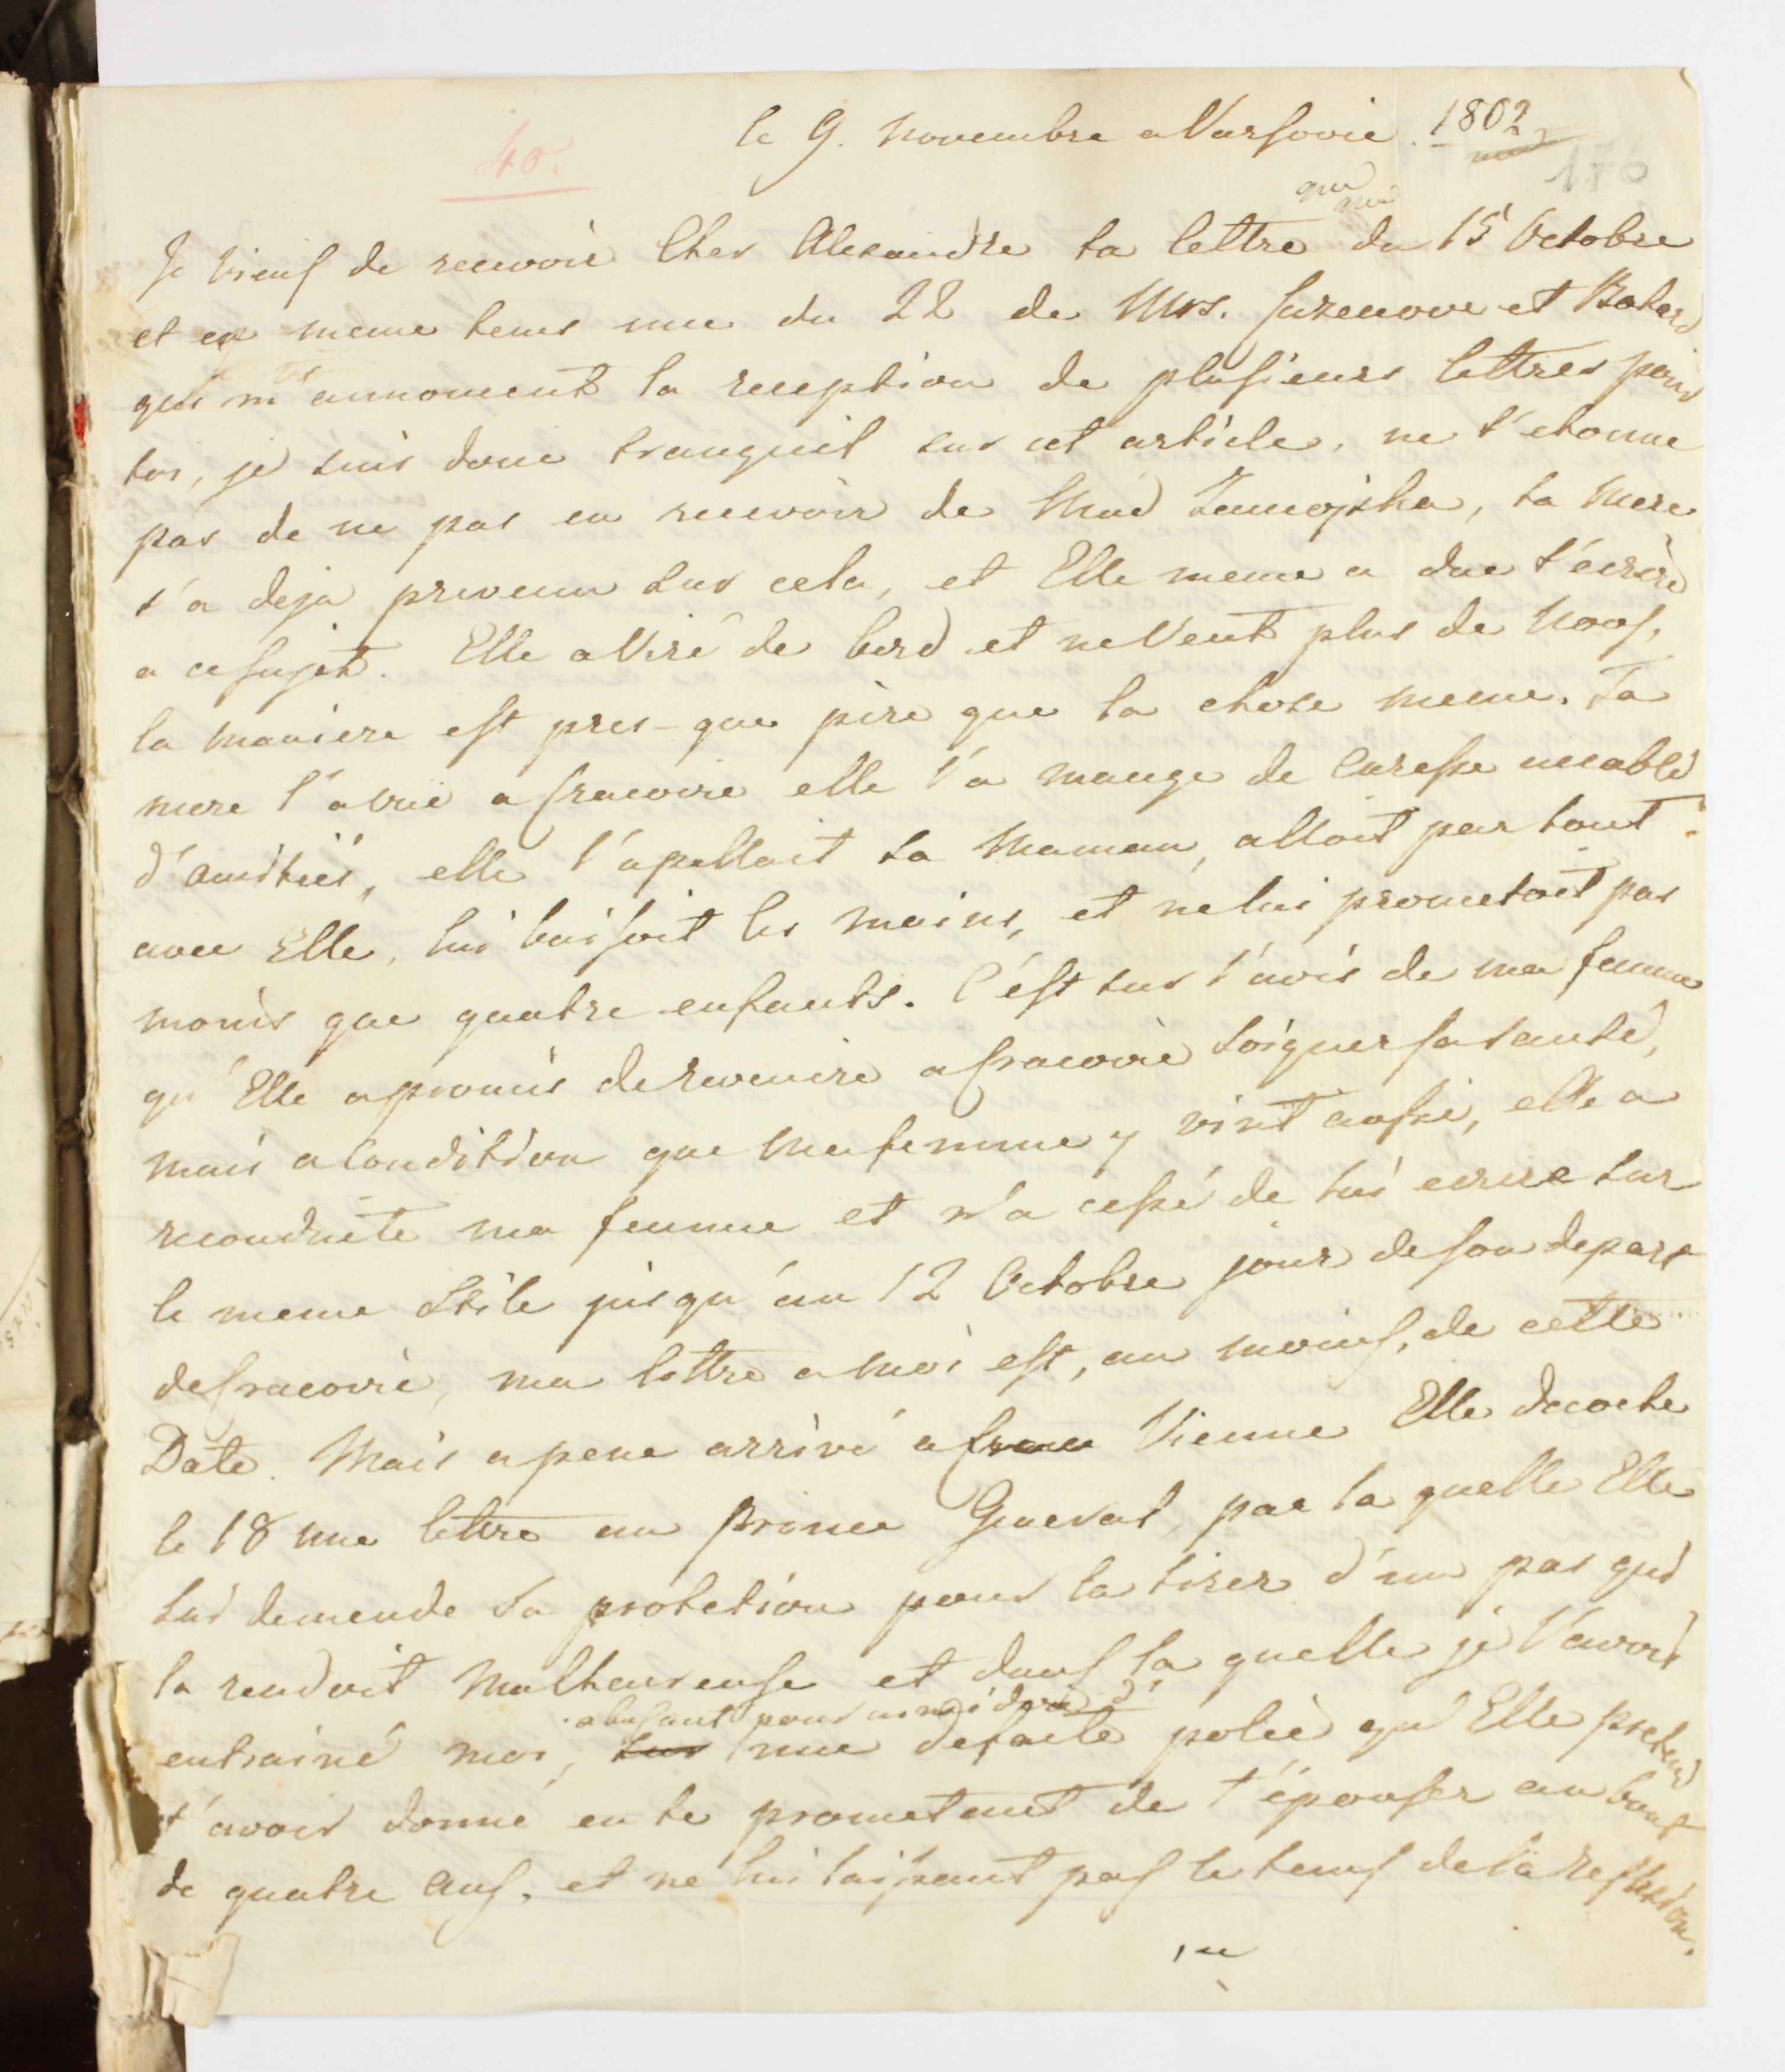 le 9. Novembre a Varsovie. 1802
40.
176
Je viens de recevoir Cher Alexandre ta lettre du 15 Octobre
et en meme tems une du 22 de Mrs. Cazenove et Batard
qui m'annoncent la reception de plusieurs lettres pour
toi, je suis donc tranquil sur cet article, ne t'etonne
pas de ne pas en recevoir de Mad Zamojska, ta Mere
t'a deja prevenu sur cela, et Elle meme a due t'écrire
a ce sujet. Elle a Viré de bord et ne Veut plus de Nous,
la maniere est pres-que pire que la chose meme. Ta
mere l'a vue a Cracovie elle l'a mangé de Caresse accablé
d'amitiés, elle l'apellait sa Maman, alloit par tout
avec Elle, lui baisoit les mains, et ne lui prometoit pas
moins que quatre enfants. C'est sur l'avis de ma femme
qu'Elle a promis de revenire a Cracovie soigner sa santé,
mais a Condition que Ma femme y vint aussi, elle a
reconduite ma femme et n'a cessé de lui ecrire sur
le meme Stile jusqu'au 12 Octobre jour de son depart
de Cracovie, ma lettre a Moi est, au moins, de cette
Date. Mais a pene arrivé a Crac Vienne Elle decoche
le 18 une lettre au Prince General, par la quelle Elle
lui demende sa protetion pour la tirer d'un pas qui
la rendoit Malheureuse et dans la quelle je l'avois
abusant pour ainsi dire d'
entrainé moi, sur une defaite polie qu'Elle pretend
t'avoir donné en te prometant de t'épouser au bout
de quatre ans, et ne lui laissant pas le tems de la reflexion.